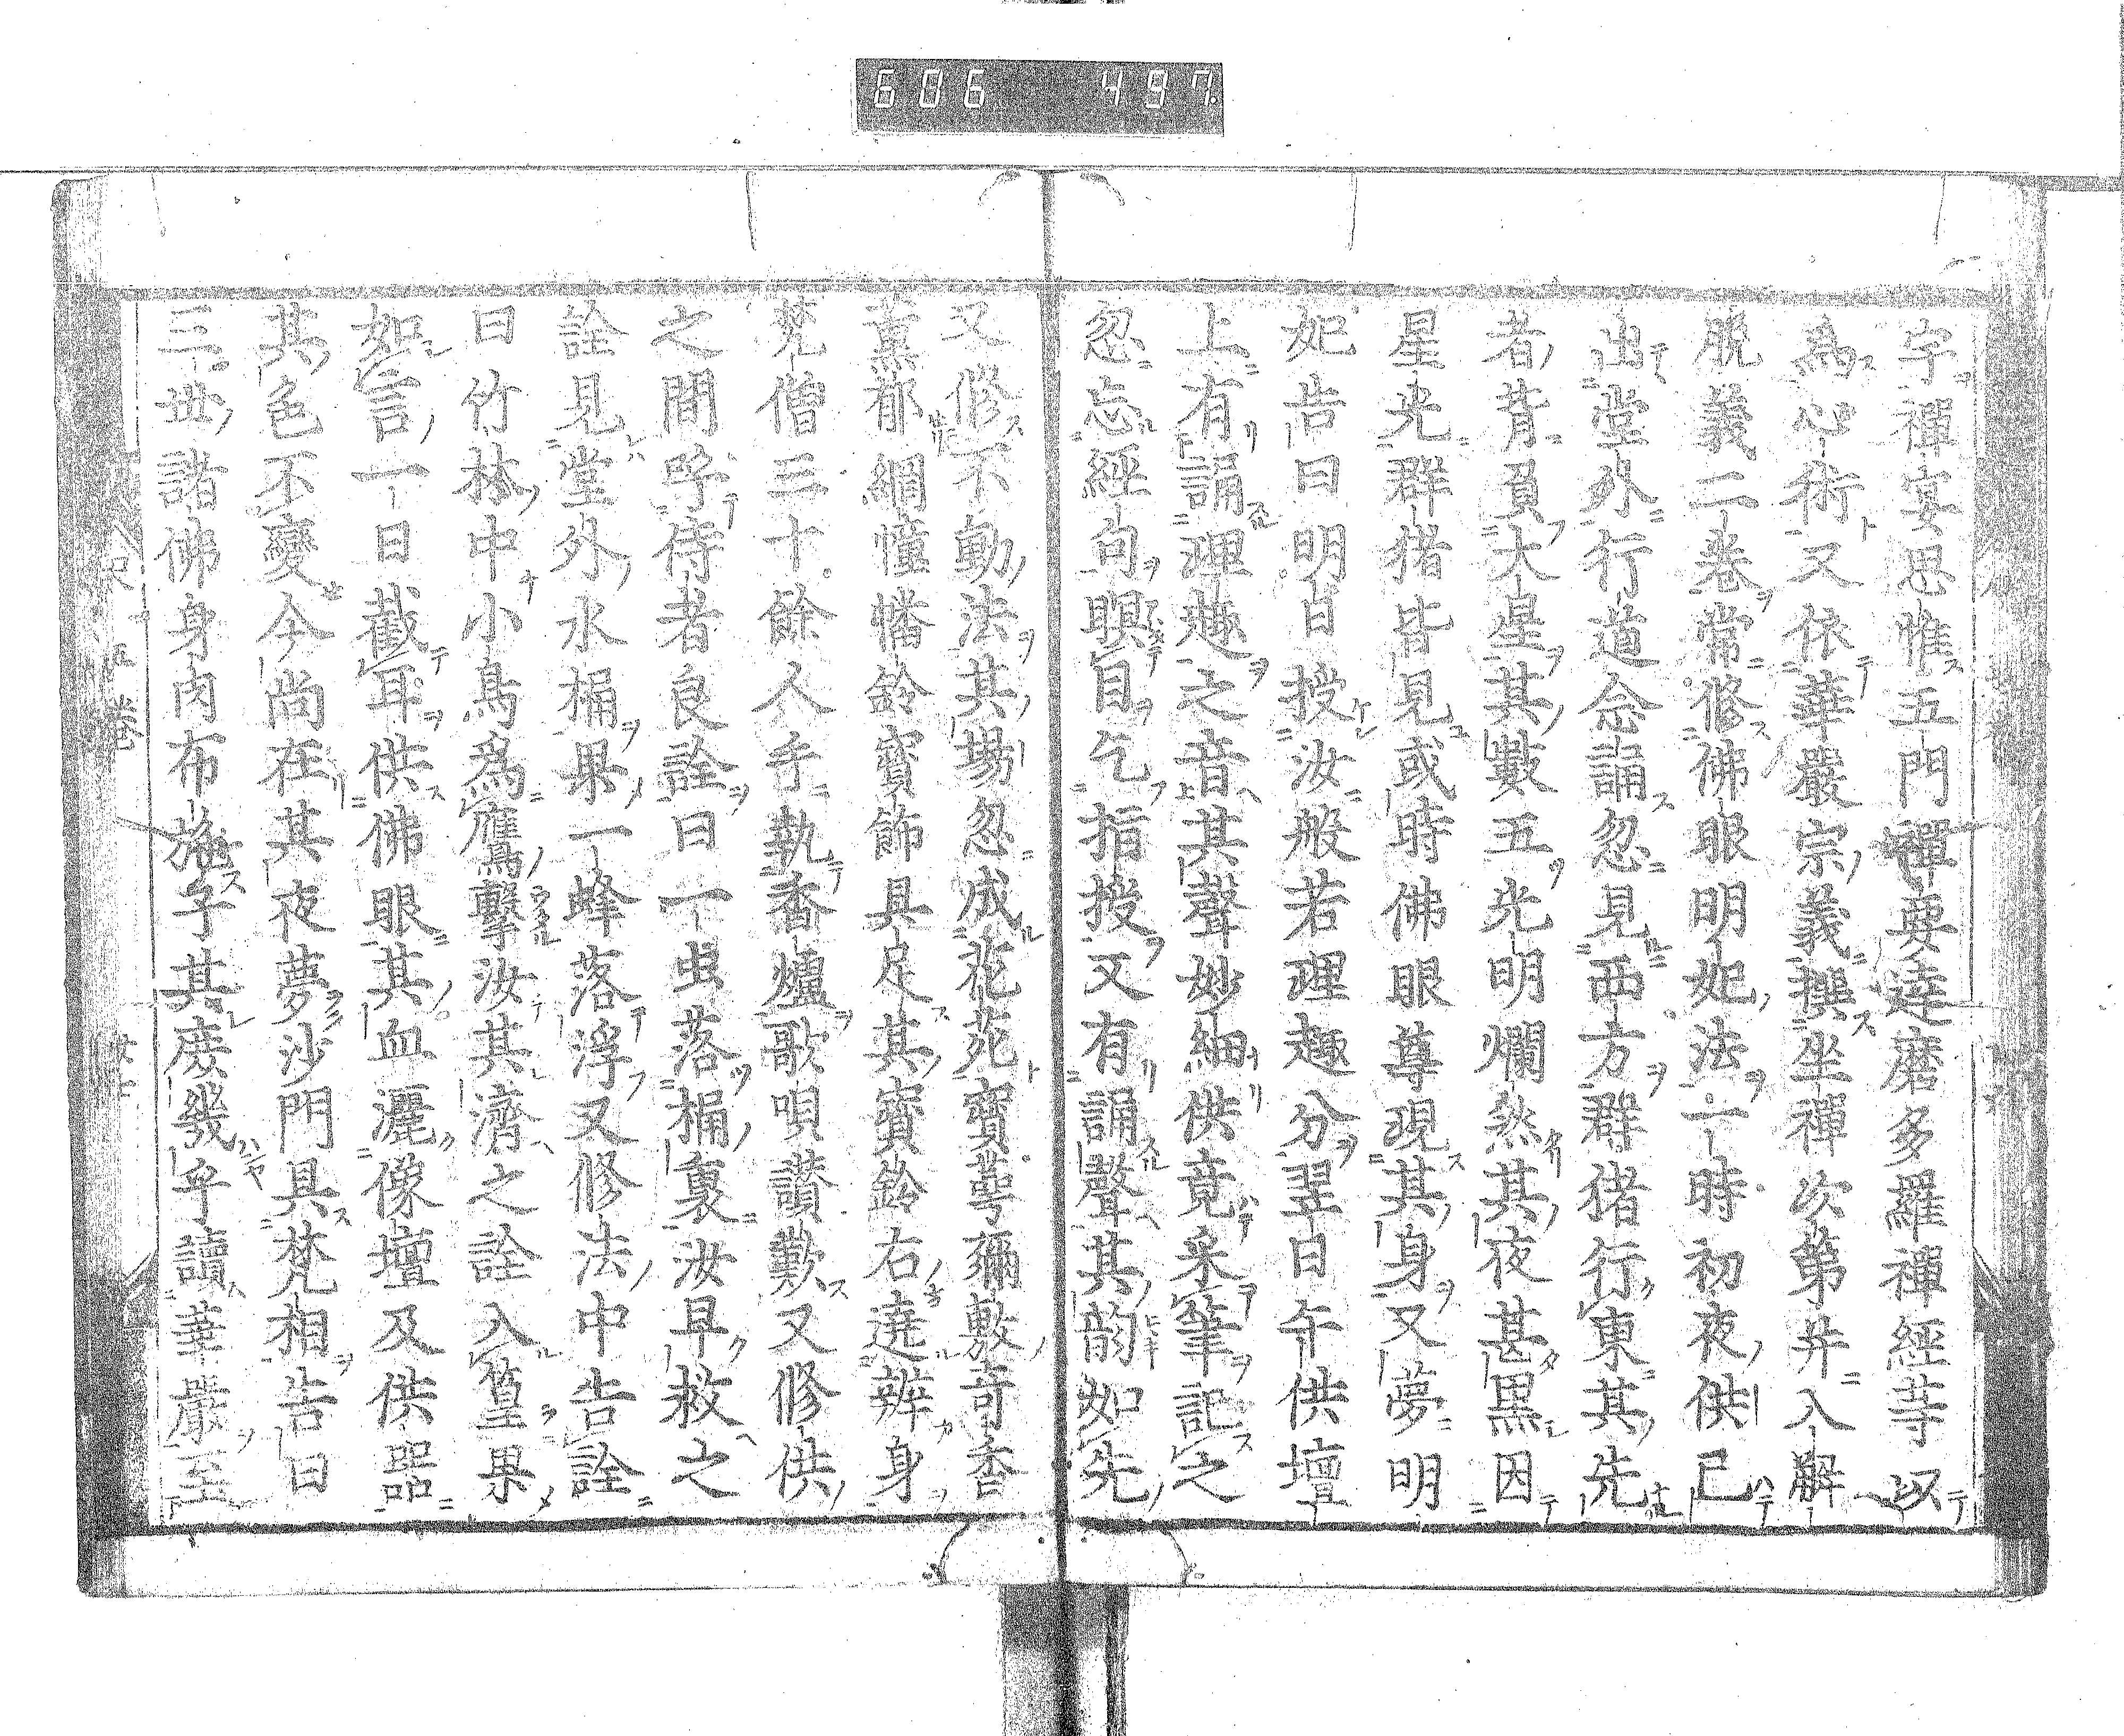 606 497
字禪宴思惟五門禪要達磨多羅禪經等以
為心術又依華嚴宗義撰坐禪次第并入解
脫義二卷常修佛眼明妃法一時初夜供已
出堂外行道念誦忽見西方群猪行東其先
者背負大星其數五光明爛然其夜甚黑因
星光群猪皆見或時佛眼尊現其身又夢明
妃告曰明日授汝般若理趣分翌日午供壇
上有誦理趣之音其聲妙細供竟采筆記之
忽忘經句瞑目乞指授又有誦聲其韵如先
又修不動法其場忽成花苑寶萼彌敷奇香
薰郁網幢幡鈴寶飾具足其寶鈴右遶辨身
梵僧三十餘人手執香爐歌唄讚歎又修供
之間呼侍者良詮曰一虫落桶裏汝早救之
詮見堂外水桶果一蜂落浮又修法中告詮
曰竹林中小鳥為鷹鳥擊汝其濟之詮入篁果
如言一日截耳供佛眼其血灑像壇及供器
其色不變今尚在其夜夢沙門具梵相告曰
三世諸佛身肉布施子其庶幾乎讀華嚴至
卷